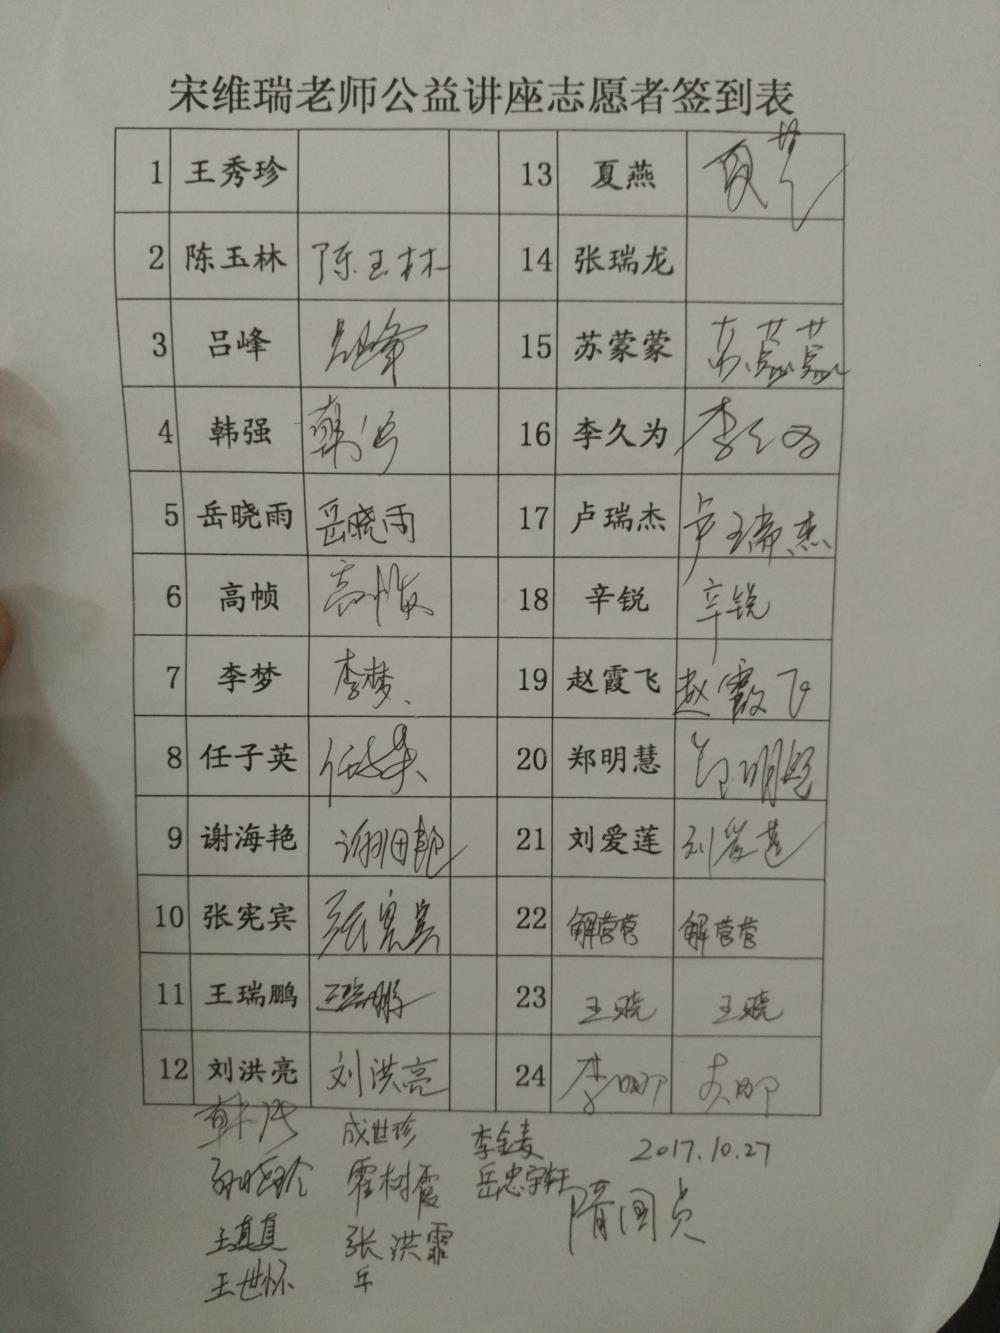 宋维瑞老师公益讲座志愿者签到表
1 王秀珍 13 夏燕 夏燕
2 陈玉林 陈玉林 14 张瑞龙
3 吕峰 吕峰 15 苏蒙蒙 苏蒙蒙
4 韩强 韩强 16 李久为 李久为
5 岳晓雨 岳晓雨 17 卢瑞杰 卢瑞杰
6 高帧 高帧 18 辛锐 辛锐
7 李梦 李梦 19 赵霞飞 赵霞飞
8 任子英 任子英 20 郑明慧 郑明慧
9 谢海艳 谢海艳 21 刘爱莲 刘爱莲
10 张宪宾 张宪宾 22 解营营 解营营
11 王瑞鹏 王瑞鹏 23 王晓 王晓
12 刘洪亮 刘洪亮 24 李娜
成世珍 李金麦 2017.10.27
霍树霞 岳忠宇轩
隋国员
王真真 张洪霏
王世怀